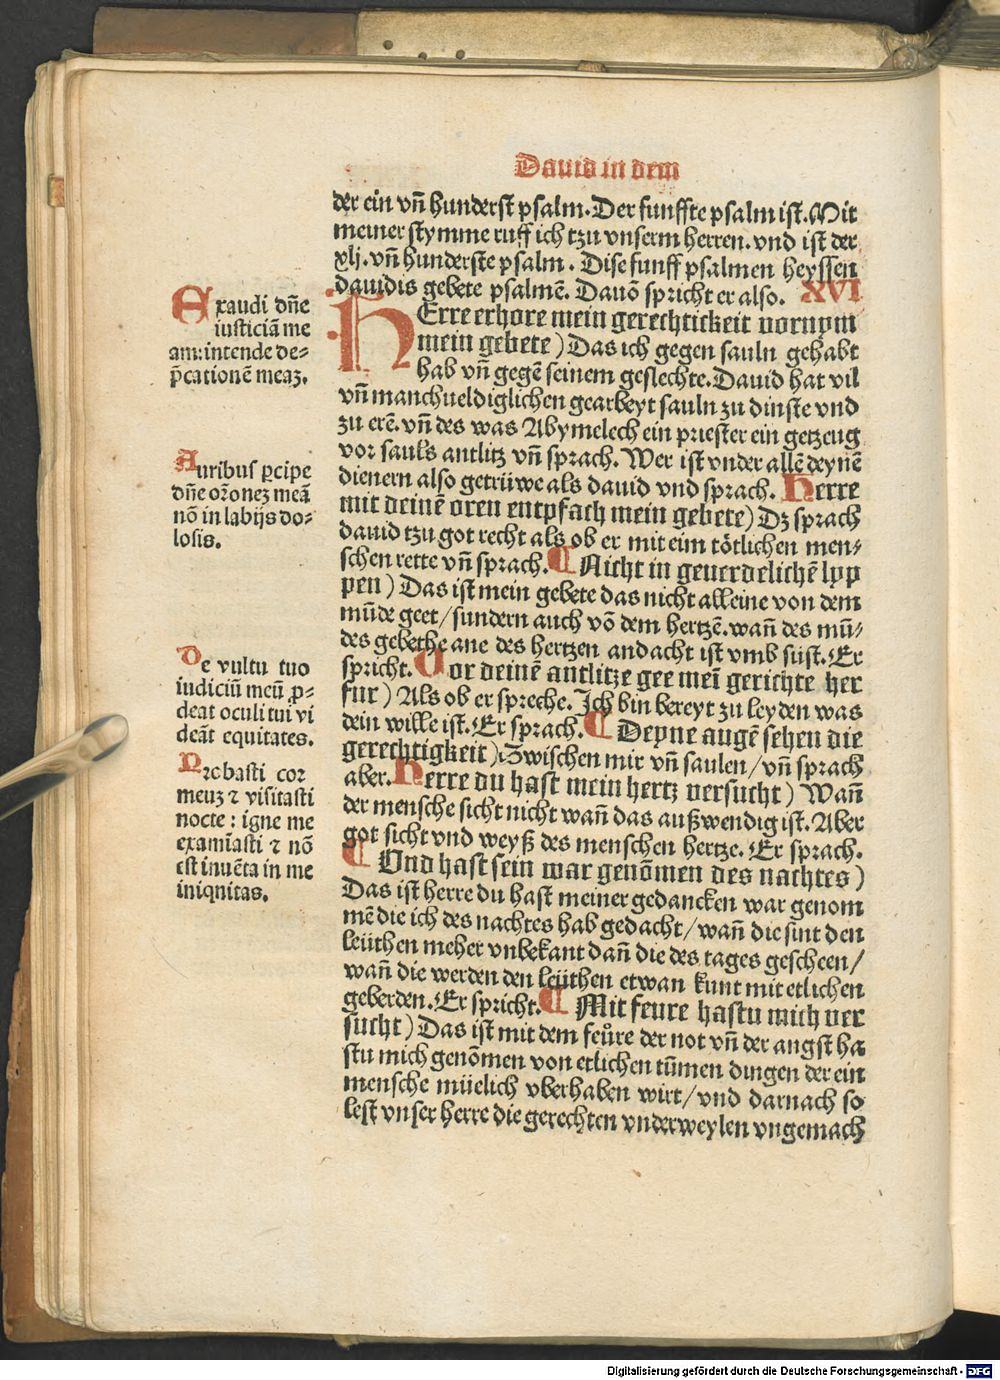 Dauid in dem
der ein vn̄ hunderst psalm. Der funffte psalm ist. Mit
meiner stymme ruff ich tzu vnserm herren. vnd ist der
xlj. vn̄ hunderste psalm. Dise funff psalmen heyssen
dauidis gebete psalmē. Dauō spricht er also. XVI
HErre erhore mein gerechtickeit vornym
mein gebete) Das ich gegen sauln gehabt
hab vn̄ gegē seinem geslechte. Dauid hat vil
vn̄ manchueldiglichen gearbeyt sauln zu dinste vnd
zu erē. vn̄ des was Abymelech ein priester ein getzeug
vor sauls antlitz vn̄ sprach. Wer ist vnder allē deynē
dienern also getrüwe als dauid vnd sprach. Herre
mit deinē oren entpfach mein gebete) Dz sprach
dauid tzu got recht als ob er mit eim tötlichen men-
schen rette vn̄ sprach. ¶ Nicht in geuerdelichē lyp
pen) Das ist mein gebete das nicht alleine von dem
mūde geet/ sundern auch vō dem hertzē. wan̄ des mū-
des gebethe ane des hertzen andacht ist vmb süst. Er
spricht. Vor deinē antlitze gee mei̅ gerichte her
fur) Als ob er spreche. Ich bin bereyt zu leyden was
dein wille ist. Er sprach. ¶ Deyne augē sehen die
gerechtigkeit) Zwischen mir vn̄ saulen/ vn̄ sprach
aber. Herre du hast mein hertz versucht) Wan̄
der mensche sicht nicht wan̄ das außwendig ist. Aber
got sicht vnd weyß des menschen hertze. Er sprach.
¶ Vnd hast sein war genōmen des nachtes)
Das ist herre du hast meiner gedancken war genom
mē die ich des nachtes hab gedacht/ wan̄ die sint den
leüthen meher vnbekant dan̄ die des tages gescheen/
wan̄ die werden den leüthen etwan kunt mit etlichen
geberden. Er spricht. ¶ Mit feure hastu mich ver
sucht) Das ist mit dem feůre der not vn̄ der angst ha
stu mich genōmen von etlichen tūmen dingen der ein
mensche müelich vberhaben wirt/ vnd darnach so
lest vnser herre die gerechten vnderweylen vngemach
Exaudi dn̄e
iusticiā me
am: intende de-
p̄cationē meaʒ.
Auribus ꝑcipe
dn̄e or̄oneʒ meā
nō in labijs do-
losis.
De vultu tuo
iudiciū meū ꝓ-
deat oculi tui vi
deāt equitates.
Probasti cor
meuʒ ⁊ visitasti
nocte: igne me
exami̅asti ⁊ nō
est inuēta in me
iniqnitas.
Digitalisierung gefördert durch die Deutsche Forschungsgemeinschaft - DFG